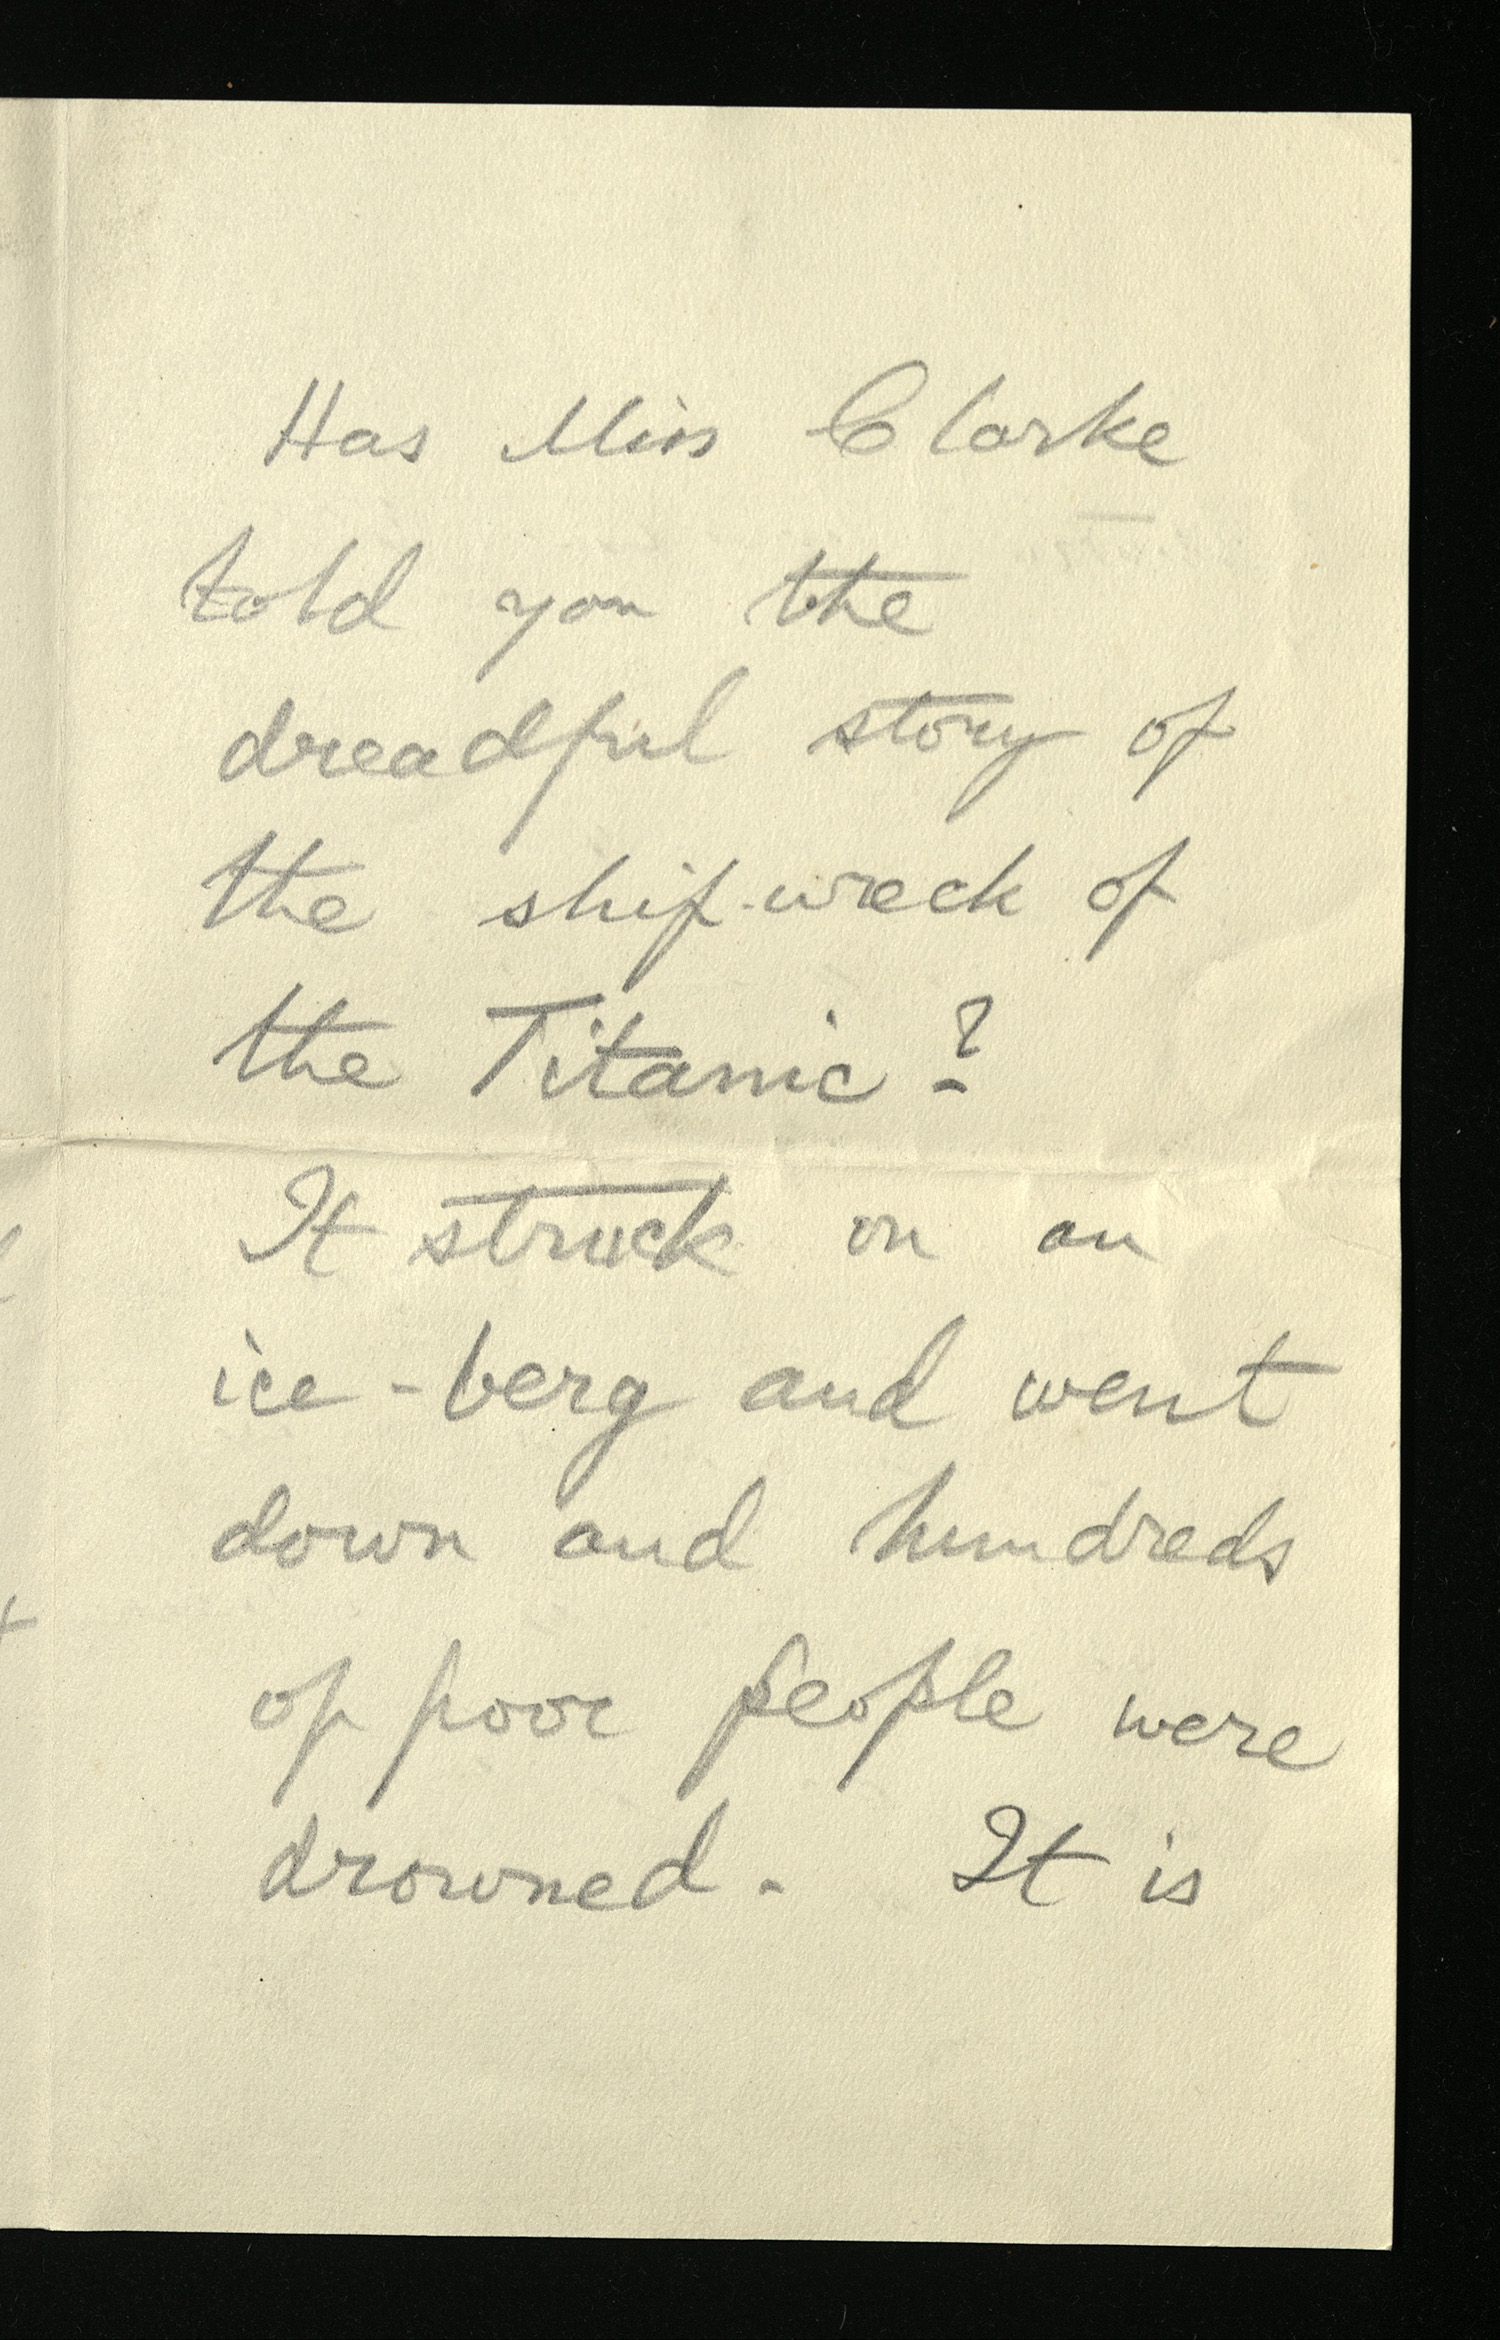 Has Miss Clarke
told you the
dreadful story of
the ship-wreck of
the Titanic?
It struck on an
ice-berg and went
down and hundreds
of poor people were
drowned. It is